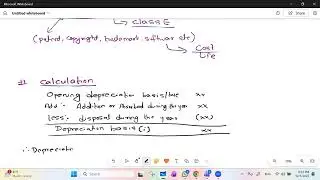 Microsoft Whiteboard
Untitled whiteboard
class E
(patent, copyright, trademark software etc)
Cost
Life
calculation
Opening depreciation basis/base xx
Add:- Addition or Absorbed during the year xx
Less:- disposal during the year (xx)
Depreciation basis(i) xx
∴ Depreciation
Search